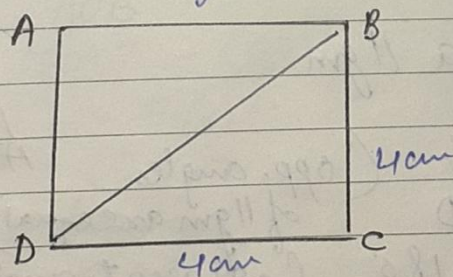 A
B
4cm
D
C
4cm